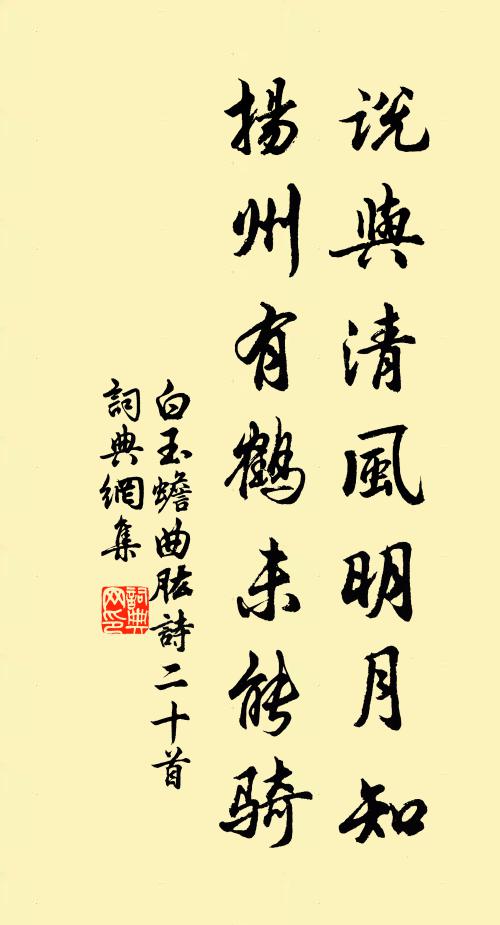 說與清風明月知
揚州有鶴未能騎
白玉蟾曲肱詩二十首
詞典網集
詞典
网印